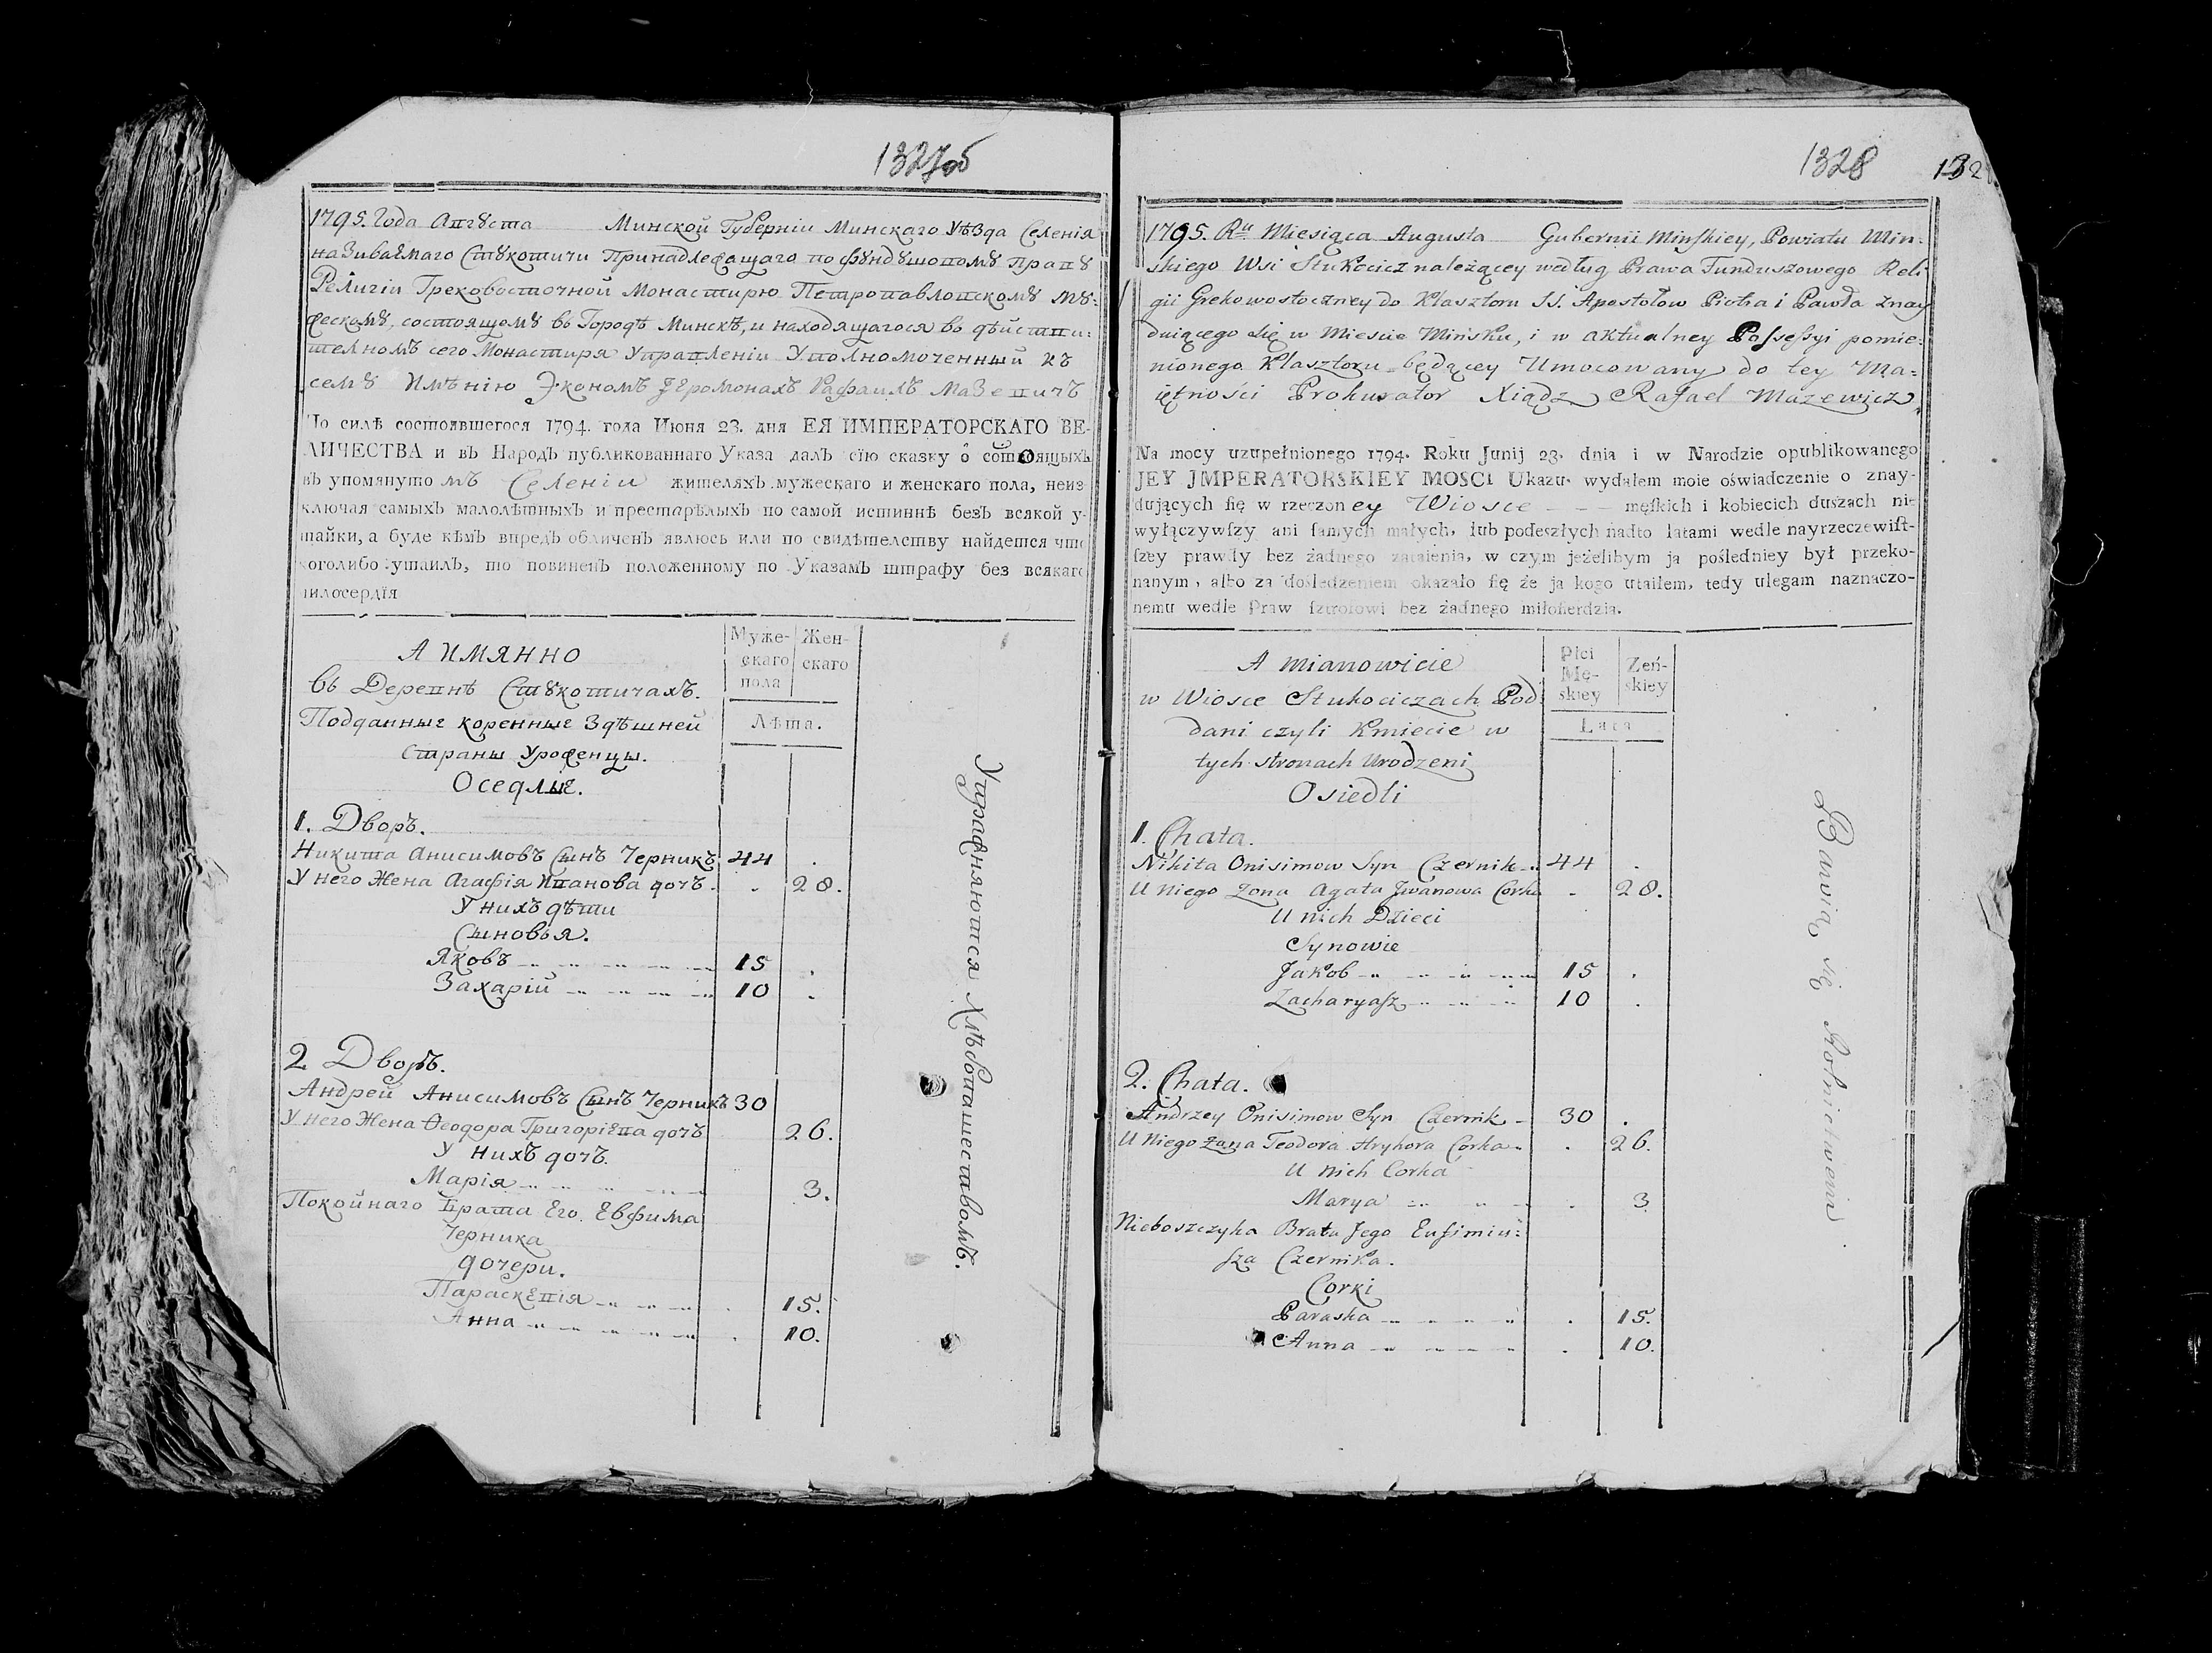 1327об
1795. Года Августа Минской Губерніи Минскаго Уѣзда Селенія
називаемаго Стꙋкотичи Принадлежащаго по фꙋндꙋшовомꙋ правꙋ
Религіи Грековосточной Монастирю Петропавловскомꙋ мꙋ-
жескомꙋ, состоящомꙋ въ Городѣ Минскѣ, и находящагося въ дѣйстви-
телномъ сего Монастиря Управленіи Уполномоченный къ
семꙋ Имѣнію Экономъ Іеромонахъ Рафаилъ Мазевичъ
По силѣ состоявшегося 1794. года Июня 23. дня ЕЯ ИМПЕРАТОРСКАГО ВЕ-
ЛИЧЕСТВА и въ Народъ публикованнаго Указа далъ сїю сказку о состоящыхъ
въ упомянутомъ Селеніи жителяхъ мужескаго и женскаго пола, неиз
ключая самыхъ малолѣтныхъ и престарѣлыхъ по самой истиннѣ безъ всякой у-
тайки, а буде кѣмъ впредь обличенъ явлюсь или по свидѣтелству найдется что
коголибо утаилъ, то повиненъ положенному по Указамъ штрафу без всякаго
милосердїя
А ИМЯННО
Муже-скаго пола
Жен-скаго
въ Деревнѣ Стꙋкотичахъ.
Подданные коренные Здѣшней
Лѣта.
Страны Уроженцы.
Оседлые.
1. Дворъ.
Никита Анисимовъ Сынъ Черникъ 44 .
У него Жена Агафія Иванова дочъ . . 28.
У нихъ дѣти
Сыновья.
Яковъ 15 .
Захарій 10 .
2 Дворъ.
Андрей Анисимовъ Сынъ Черникъ 30
У него Жена Ѳеодора Григоріева дочъ 26.
У нихъ дочъ.
Марія 3.
Покойнаго Брата Его Евфима
Черника
дочери.
Параскевія . 15.
Анна . 10.
Упражняются Хлѣбопашеставомъ.
1328
132
1795. Rᵘ Miesiąca Augusta Gubernii Minskiey, Powiatu Min-
skiego Wsi Stukocicz należącey według Prawa Funduszowego Reli
gii Grekowostoczney do Klasztoru SS. Apostołow Piotra i Pawła znay
duiącego się w Miescie Mińsku, i w aktualney Possessyi pomie-
nionego Klasztoru będącey Umocowany do tey Ma-
iętności Prokurator Xiądz Rafael Mazewicz
Na mocy uzupełnionego 1794. Roku Junij 23. dnia i w Narodzie opublikowanego
JEY JMPERATORSKIEY MOSCI Ukazu. wydałem moie oświadczenie o znay-
dujących się w rzeczoney Wiosce - - - męskich i kobiecich duszach nie
wyłączywszy ani samych małych, lub podeszłych nadto latami wedle nayrzeczewist-
szey prawdy bez żadnego zataienia, w czym jeżelibym ja pośledniey był przeko-
nanym, albo za dośledzeniem okazało się że ja kogo utaiłem, tedy ulegam naznaczo-
nemu wedle Praw sztrofowi bez żadnego miłosierdzia.
A mianowicie
Płci Mę-skiey
Zeń-skiey
w Wiosce Stukociczach Pod
dani czyli Kmiecie w
Lata
tych stronach Urodzeni
Osiedli
1. Chata.
Nikita Onisimow Syn Czernik 44 .
U Niego Żona Agata Jwanowa Corka . 28.
U nich Dzieci
Synowie
Jakob 15 .
Zacharyasz 10 .
2. Chata.
Andrzey Onisimow Syn Czernik 30 .
U Niego Żona Teodora Hryhora Corka . 26.
U nich Corka
Marya . 3
Nieboszczyka Brata Jego Eufimiu-
sza Czernika.
Corki
Paraska . 15.
Anna . 10.
Bawią się Rolnictwem